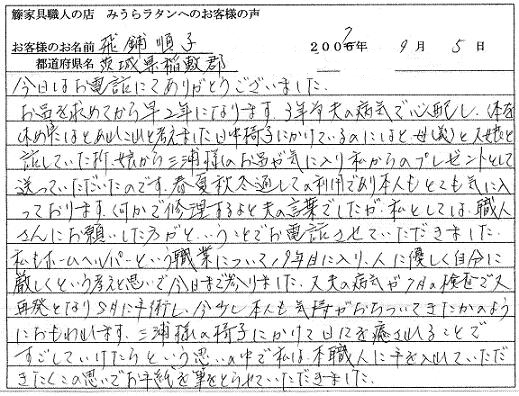 籐家具職人の店 みうらラタンへのお客様の声
お客様のお名前 飛鋪順子 2007年 9月 5日
都道府県名 茨城県稲敷郡
今日はお電話にてありがとうございました。
お品を求めてから早2年になります。3年前夫の病気で心配し、体を
休めたほと考えました日中椅子にかけているのにはと母(義)と娘と
話していた所、娘から三浦様のお品が気に入り私からのプレゼントとして
送っていただいたのです。春夏秋冬通しての利用であり本人もとても気に入
っております。何かで修理するよと夫の言葉でしたが、私としては、職人
さんにお願いした方がということでお電話させていただきました。
私もホームヘルパーという職業について19年目に入り、人に優しく自分に
厳しくという考えと思いで今日まで参りました。又夫の病気が7月の検査で又
再発となり8月に手術し、今少し本人も気持がおちついてきたかのよう
におもわれます。三浦様の椅子にかけて日々を癒されることで
すごしていけたらという思いの中で私は、本職人に手を入れていただ
きたくこの思いでお手紙を筆をとらせていただきました。